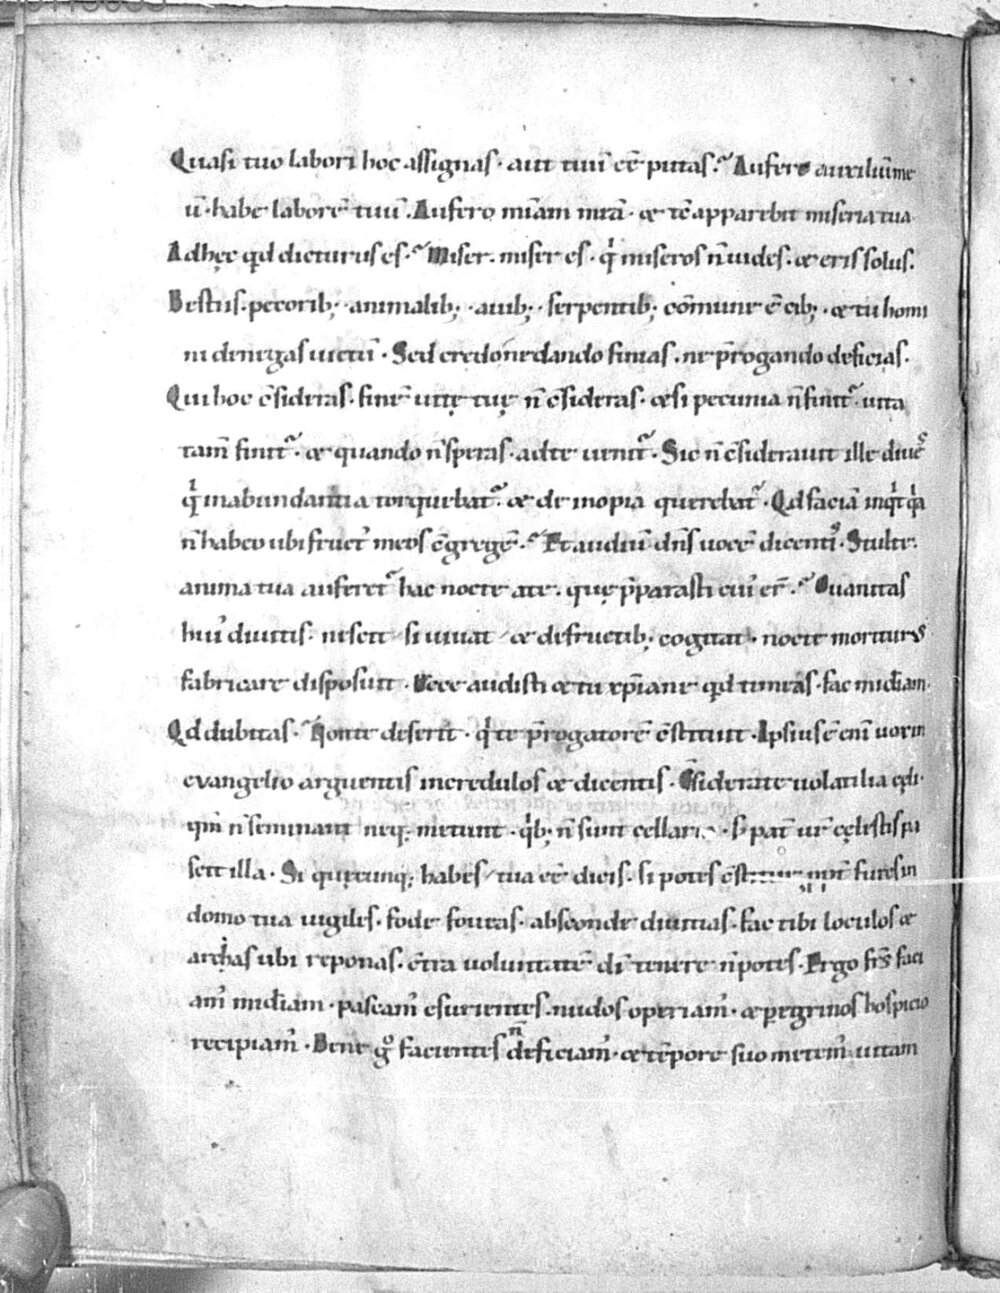 Quasi tuo labori hoc assignas · aut tuũ eẽ putas · Aufero auxiliũ me
ũ · habe laborẽ tuũ · Aufero miãm meã · & tẽ apparebit miseria tua
Adhęc qd dicturus es · Miser · miser es · q' miseros ñ uides · & eris solus .
Bestiis · pecorib; · animalib; · auib; · serpentib; cõmune ẽ cib; · & tu homi
ni denegas uictũ · Sed credo ne dando finias · ne p̃rogando deficias .
Qui hoc c̃sideras · finẽ uitę tuę ñ c̃sideras · & si pecunia ñ finit̃ · uita
tam̃ finit̃ · & quando ñ speras · ad te uenit̃ · Sic ñ c̃siderauit ille diues
q' in abundantia torquebat̃ · & de inopia querebat̃ · Qd faciã inq't q'a
ñ habeo ubi fruct' meos c̃gregẽ · Et audiũ dñs uocẽ dicenti' · Stulte .
anima tua auferet̃ hac nocte a te · quę p̃parasti cui' er̃ · O uanitas
hui' diuitis · nescit si uiuat & de fructib; cogitat · nocte moriturus
fabricare disposuit · Ecce audisti & tu xp̃iane qd timeas · fac mid̃iam ·
Qd dubitas · Non te deserit · q' te p̃rogatorẽ c̃stituit · Ipsius ẽ eni uox in
evangelio arguentis incredulos & dicentis · C̃siderate uolatilia cęli ·
qm̃ ñ seminant neq; metunt · q'b; ñ sunt cellaria · s; pat̃ ur̃ cęlestis pa
scit illa · Si quęcunq; habes tua eẽ dicis · si potes fures in
domo tua uigiles · fode foueas · absconde diuitias · fac tibi loculos &
archas ubi reponas · c̃tra uoluntatẽ di tenere ñ potes · Ergo frs̃ faci
am' mid̃iam · pascam' esurientes · nudos operiam' · & peregrinos hospicio
recipiam' · Bene go facientes ñ deficiam' · & tẽpore suo metem' uitam